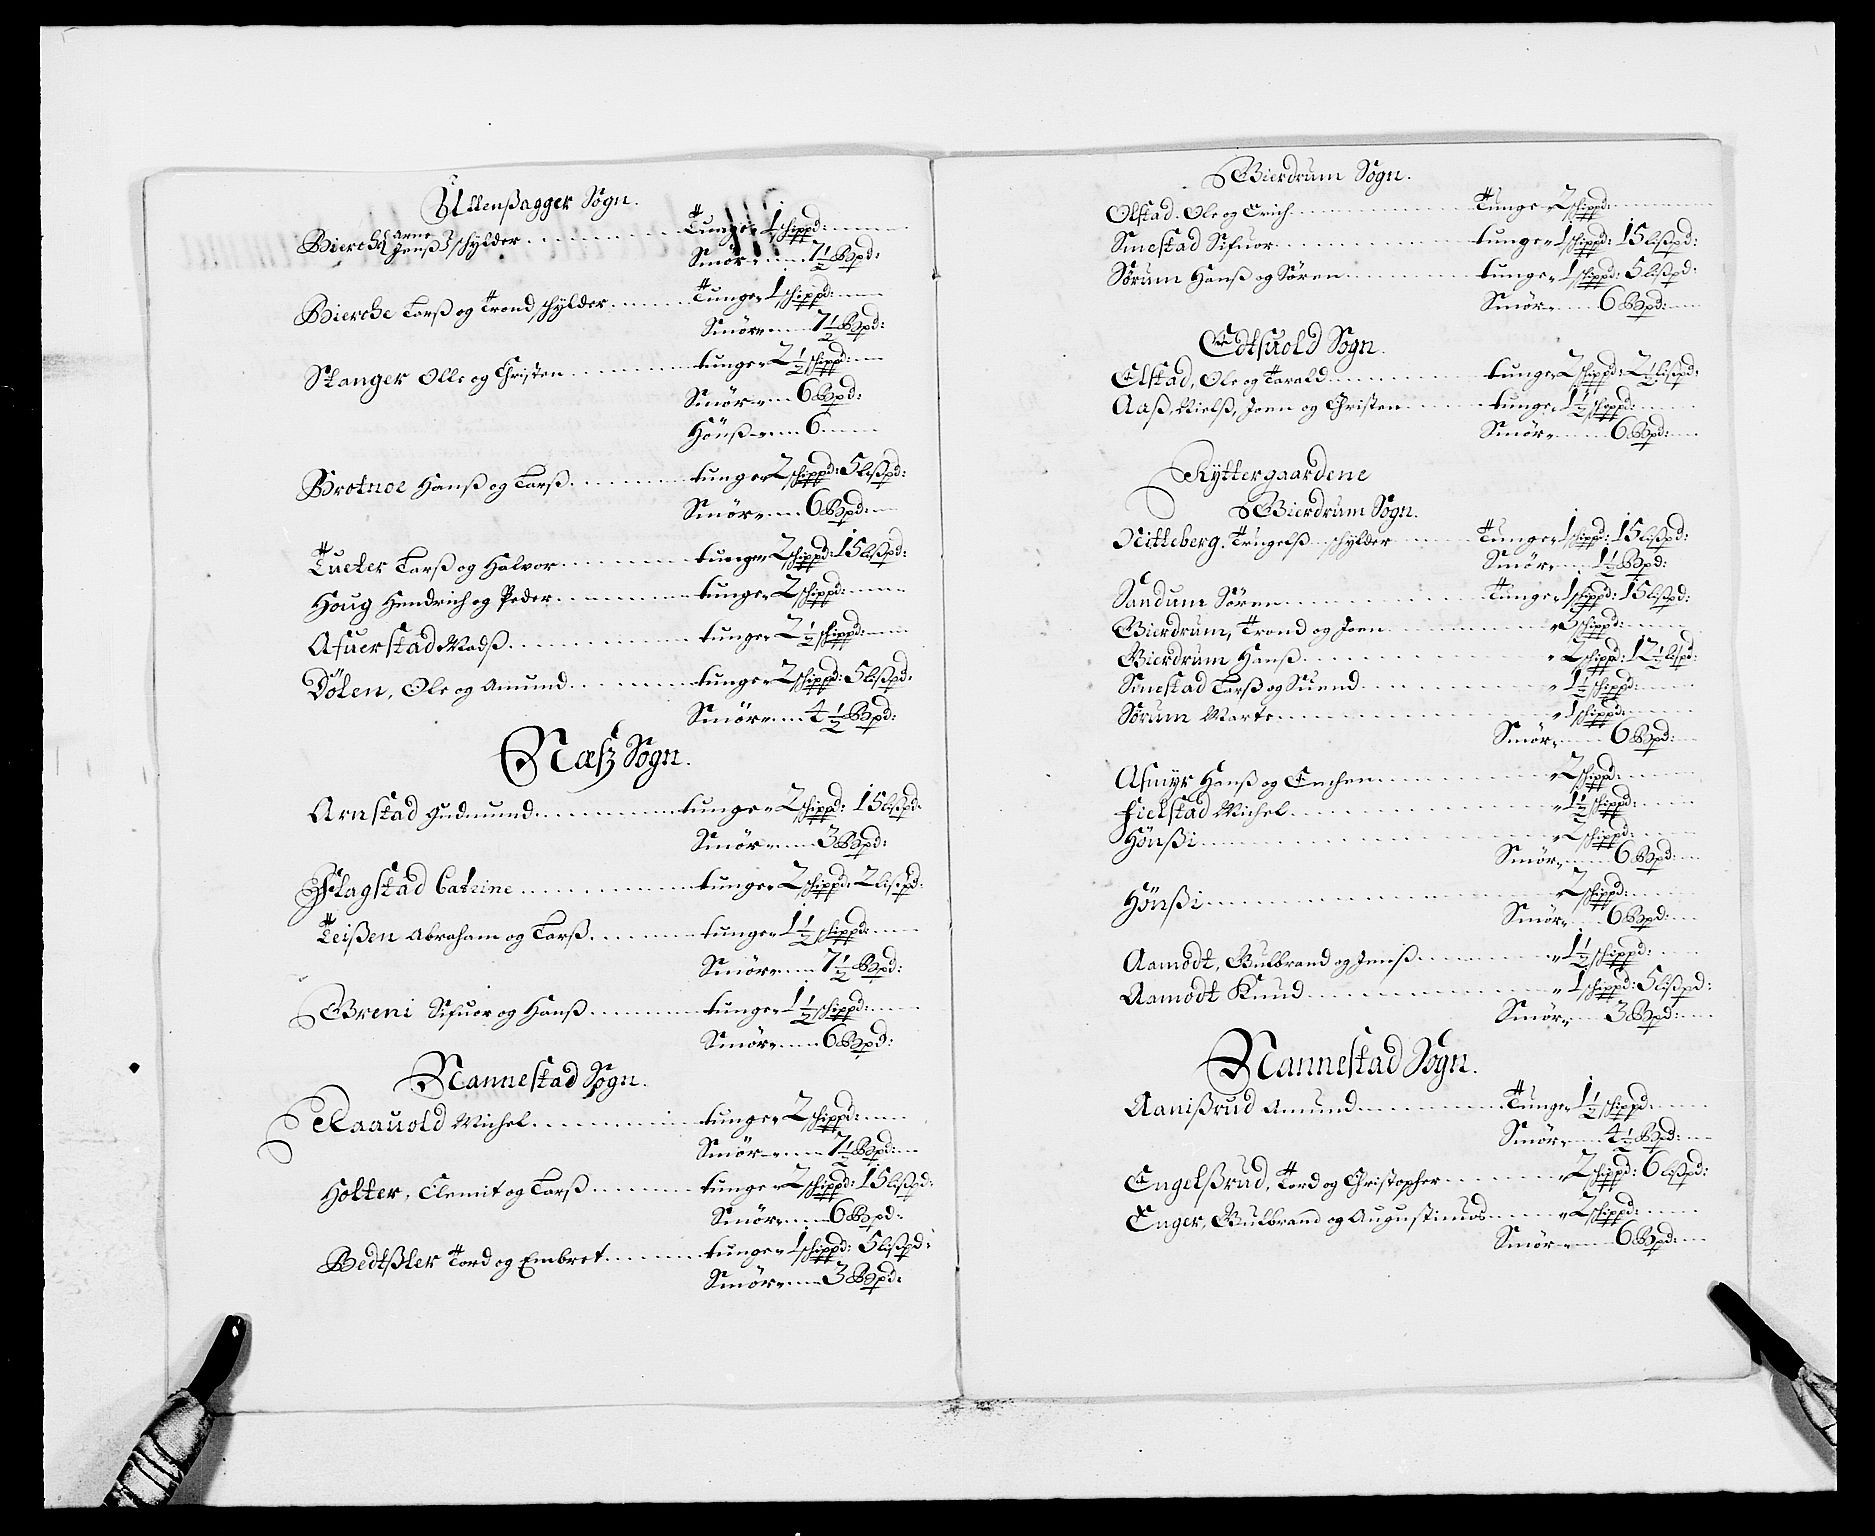 Ullensagger Sogn.
Bierche Arne Jenß schylder Tunge 1 schippd:
Smör 7½ Bpd:
Bierche Larß og Trond schylder Tunge 1 schippd:
Smör 7½ Bpd:
Stanger Olle og Christen tunge 2½ schippd:
Smör 6 Bpd:
Hönß 6
Brotnoe Hanß og Larß tunge 2 schippd: 5 lißpd:
Smör 6 Bpd:
Tueter Larß og Halvor tunge 2 schippd: 15 lißpd:
Houg Hendrich og Peder tunge 2 schippd:
Afuerstad Madß tunge 2½ schippd:
Dölen, Ole og Amund tunge 2 schippd: 5 lißpd:
Smör 4½ Bpd:
Næsz Sogn.
Arnstad Gudmund tunge 2 schippd: 15 lißpd:
Smör 3 Bpd:
Flagstad Catrine tunge 2 schippd: 2 lißpd:
Teißen Abraham og Larß tunge 1½ schippd:
Smör 7½ Bpd:
Breni Sifuor og Hanß tunge 1½ schippd:
Smör 6 Bpd:
Nannestad Sogn.
Raauold Michel tunge 2 schippd:
Smör 7½ Bpd:
Holter, Clemit og Larß tunge 2 schippd: 15 lißpd:
Smör 6 Bpd:
Bedtßler Tord og Embret tunge 1 schippd: 5 lißpd:
Smör 3 Bpd:
Gierdrum Sogn.
Olstad. Ole og Erich Tunge 2 schippd:
Smestad Sifuor tunge 1 schippd: 15 lißpd:
Sörum Hanß og Sören tunge 1 schippd: 5 lißpd:
Smör 6 Bpd:
Edtsuold Sogn.
Elstad, Ole og Tarald tunge 2 schippd: 2½ lißpd:
Aaß, Nielß, Joen og Christen tunge 1½ schippd:
Smör 6 Bpd:
Ryttergaardene
Gierdrum Sogn.
Nitteberg. Trugelß schylder Tunge 1 schippd: 15 lißpd:
Smör 1½ Bpd:
Sandum Sören Tunge 1 schippd: 15 lißpd:
Gierdrum, Trond og Joen 3 schippd:
Gierdrum Hanß 2 schippd: 12½ lißpd:
Smestad Larß og Suend 1½ schippd:
Sörum Marte 1 schippd:
Smör 6 Bpd:
Asmyr Hanß og 2 schippd:
Fielstad Michel 1½ schippd:
Hönßi 2 schippd:
Smör 6 Bpd:
Hönßi 2 schippd:
Smör 6 Bpd:
Aamodt, Gulbrand og Jenß 1½ schippd:
Aamodt Knud 1 schippd: 5 lißpd:
Smör 3 Bpd:
Nannestad Sogn.
Aanißrud Amund Tunge 1½ schippd:
Smör 4½ Bpd:
Engelßrud, Tord og Christopher 2 schippd: 6 lißpd:
Enger, Gulbrand og Augustinus 2 schippd:
Smör 6 Bpd: